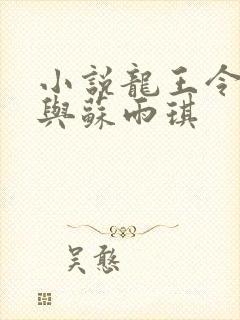 小說龍王令
與蘇雨琪
吴憨